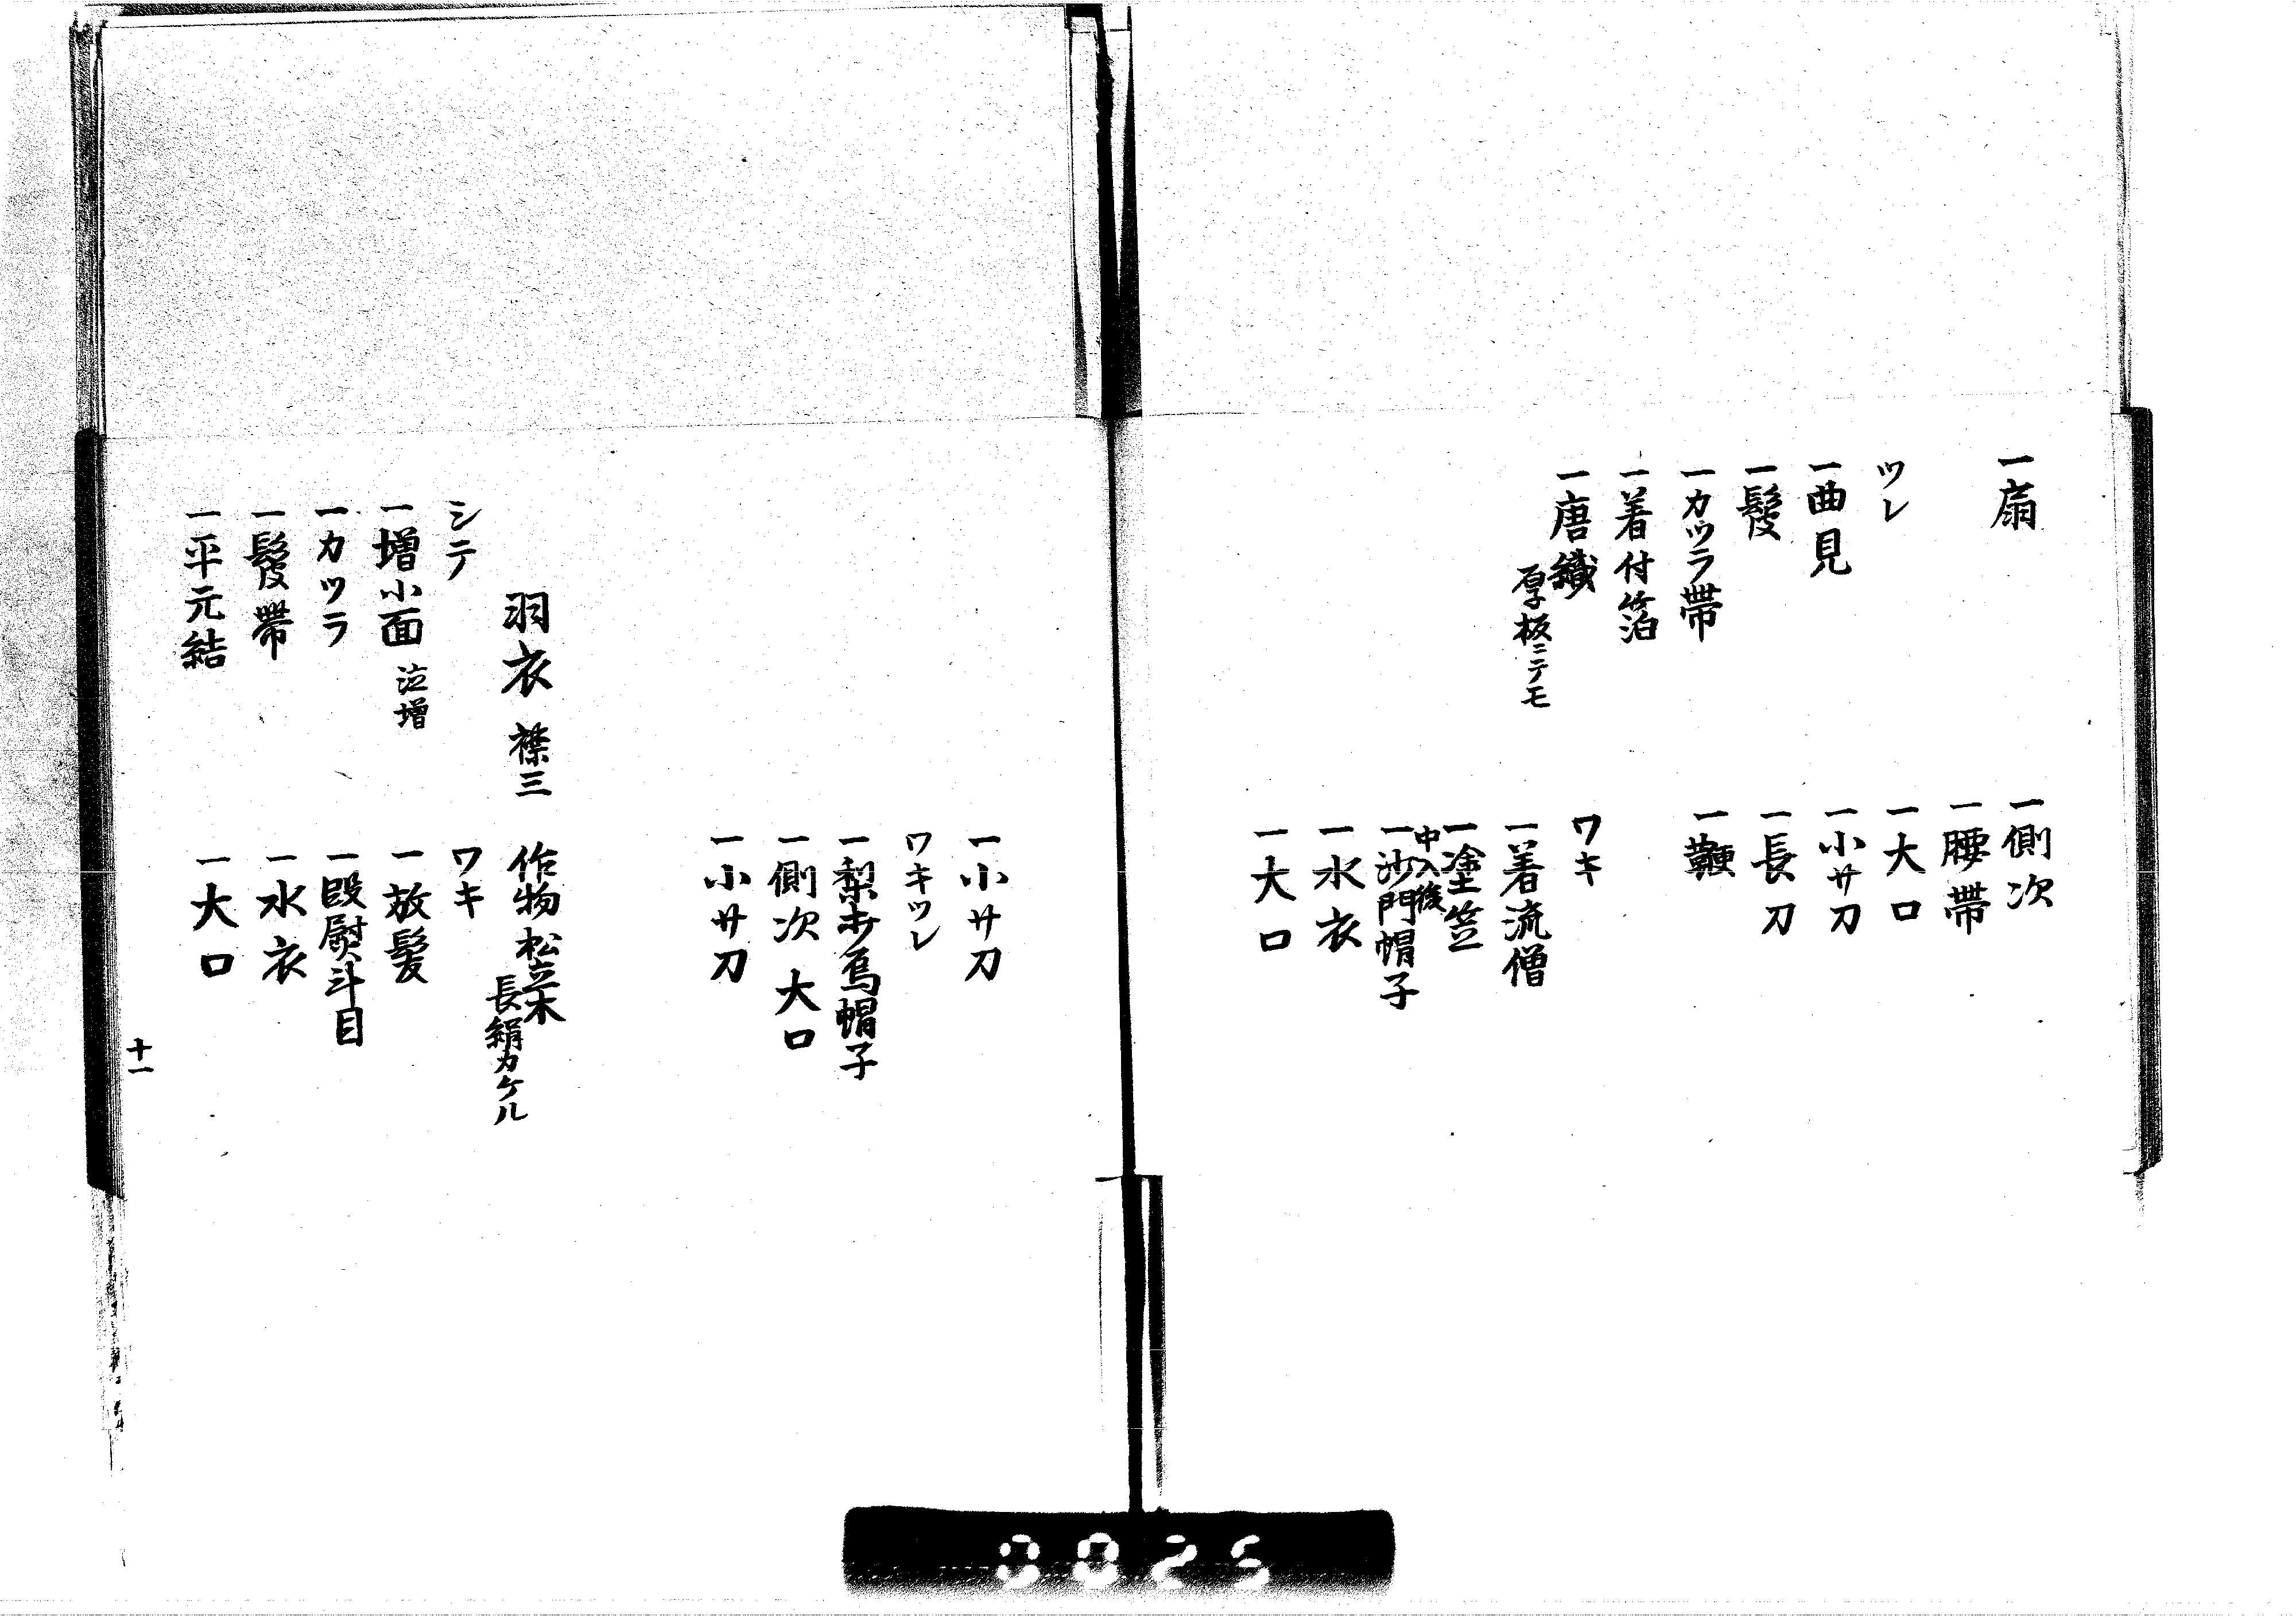 一扇
ツレ
一曲見
一鬘
一カツラ帯
一着付箔
一唐織
厚板ニテモ
一側次
一腰帯
一大口
一小サ刀
一長刀
一鞭
ワキ
一着流僧
一塗笠
中入後
一沙門帽子
一水衣
一大口
一小サ刀
ワキツレ
一梨打烏帽子
一側次 大口
一小サ刀
羽衣 襟三 作物 松立木
長絹カケル
シテ
一増小面 泣増
一カツラ
一鬘帯
一平元結
ワキ
一放髪
一段熨斗目
一水衣
一大口
十一